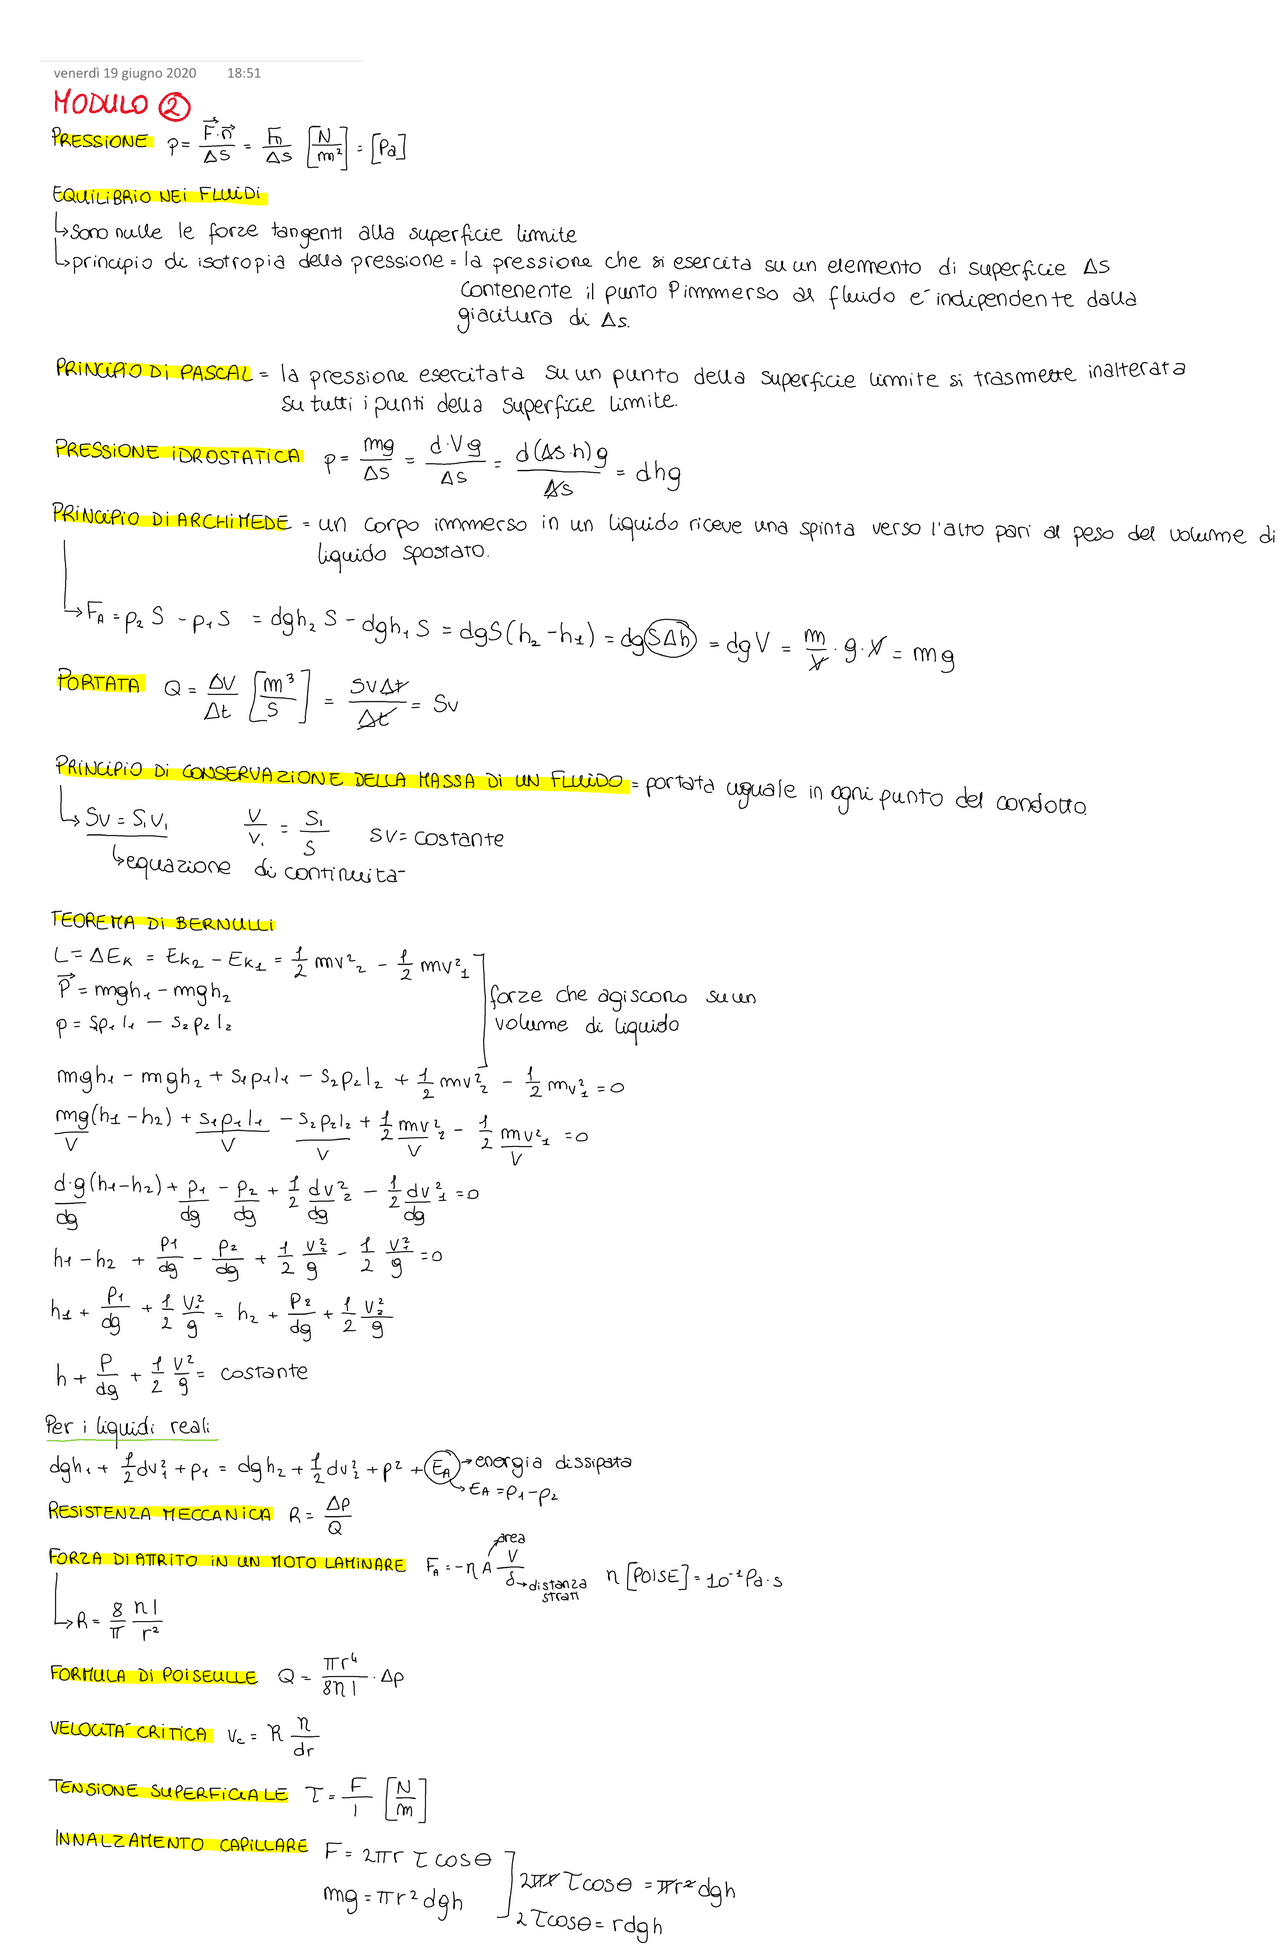 venerdì 19 giugno 2020 18:51
MODULO 2
PRESSIONE p = F⃗·n⃗/ΔS = Fn/ΔS [N/m²] = [Pa]
EQUILIBRIO NEI FLUIDI
↳ sono nulle le forze tangenti alla superficie limite
↳ principio di isotropia della pressione = la pressione che si esercita su un elemento di superficie ΔS
contenente il punto P immerso al fluido e' indipendente dalla
giacitura di Δs.
PRINCIPIO DI PASCAL = la pressione esercitata su un punto della superficie limite si trasmette inalterata
su tutti i punti della superficie limite.
PRESSIONE IDROSTATICA p = mg/ΔS = d·Vg/ΔS = d(ΔS·h)g/ΔS = dhg
PRINCIPIO DI ARCHIMEDE = un corpo immerso in un liquido riceve una spinta verso l'alto pari al peso del volume di
liquido spostato.
↳ F_A = p₂S - p₁S = dgh₂S - dgh₁S = dgS(h₂-h₁) = dgSΔh = dgV = m/V · g · V = mg
PORTATA Q = ΔV/Δt [m³/s] = SvΔt/Δt = Sv
PRINCIPIO DI CONSERVAZIONE DELLA MASSA DI UN FLUIDO = portata uguale in ogni punto del condotto.
↳ Sv = S₁v₁ v/v₁ = S₁/S Sv = costante
↳ equazione di continuita'
TEOREMA DI BERNULLI
L = ΔEk = Ek₂ - Ek₁ = 1/2 mv²₂ - 1/2 mv²₁
P⃗ = mgh₁ - mgh₂
forze che agiscono su un
volume di liquido
p = s₁p₁l₁ - s₂p₂l₂
mgh₁ - mgh₂ + s₁p₁l₁ - s₂p₂l₂ + 1/2 mv²₂ - 1/2 mv²₁ = 0
mg/V (h₁-h₂) + s₁p₁l₁/V - s₂p₂l₂/V + 1/2 mv²₂/V - 1/2 mv²₁/V = 0
d·g/dg (h₁-h₂) + p₁/dg - p₂/dg + 1/2 dv²₂/dg - 1/2 dv²₁/dg = 0
h₁ - h₂ + p₁/dg - p₂/dg + 1/2 v²₂/g - 1/2 v²₁/g = 0
h₁ + p₁/dg + 1/2 v²₁/g = h₂ + p₂/dg + 1/2 v²₂/g
h + p/dg + 1/2 v²/g = costante
Per i liquidi reali
dgh₁ + 1/2 dv²₁ + p₁ = dgh₂ + 1/2 dv²₂ + p² + E_A → energia dissipata
↳ E_A = p₁ - p₂
RESISTENZA MECCANICA R = Δp/Q
FORZA DI ATTRITO IN UN MOTO LAMINARE F_A = -η A v/δ area → distanza strati η [POISE] = 10⁻¹ Pa·s
↳ R = 8/π ηl/r²
FORMULA DI POISEULLE Q = πr⁴/8ηl · Δp
VELOCITA' CRITICA Vc = R η/dr
TENSIONE SUPERFICIALE τ = F/l [N/m]
INNALZAMENTO CAPILLARE F = 2πr τ cosθ
mg = πr² dgh
2πr τcosθ = πr² dgh
2τcosθ = rdgh